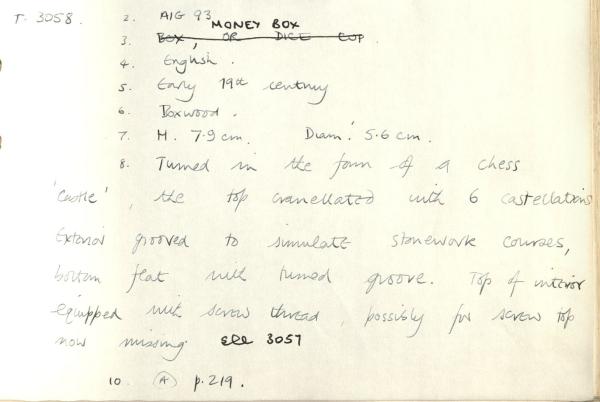 T. 3058. 2. AIG 93
MONEY BOX
3. BOX, OR DICE CUP
4. English.
5. Early 19th century
6. Boxwood.
7. H. 7.9 cm. Diam: 5.6 cm.
8. Turned in the form of a chess
'Castle', the top crenellated with 6 castellations
Exterior grooved to simulate stonework courses,
bottom flat with turned groove. Top of interior
equipped with screw thread, possibly for screw top
now missing. SEE 3057
10. (A) p.219.